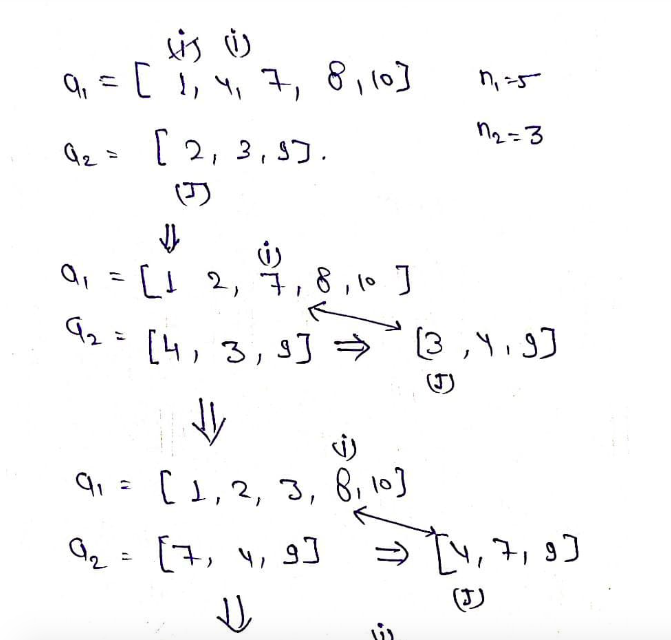 (i) (i)
a₁ = [ 1, 4, 7, 8, 10] n₁=5
a₂ = [ 2, 3, 9]. n₂=3
(J)
⇓
(i)
a₁ = [1 2, 7, 8, 10 ]
a₂ = [4, 3, 9] ⇒ [3, 4, 9]
(J)
⇓
(i)
a₁ = [ 1, 2, 3, 8, 10]
a₂ = [7, 4, 9] ⇒ [4, 7, 9]
(J)
⇓
(i)